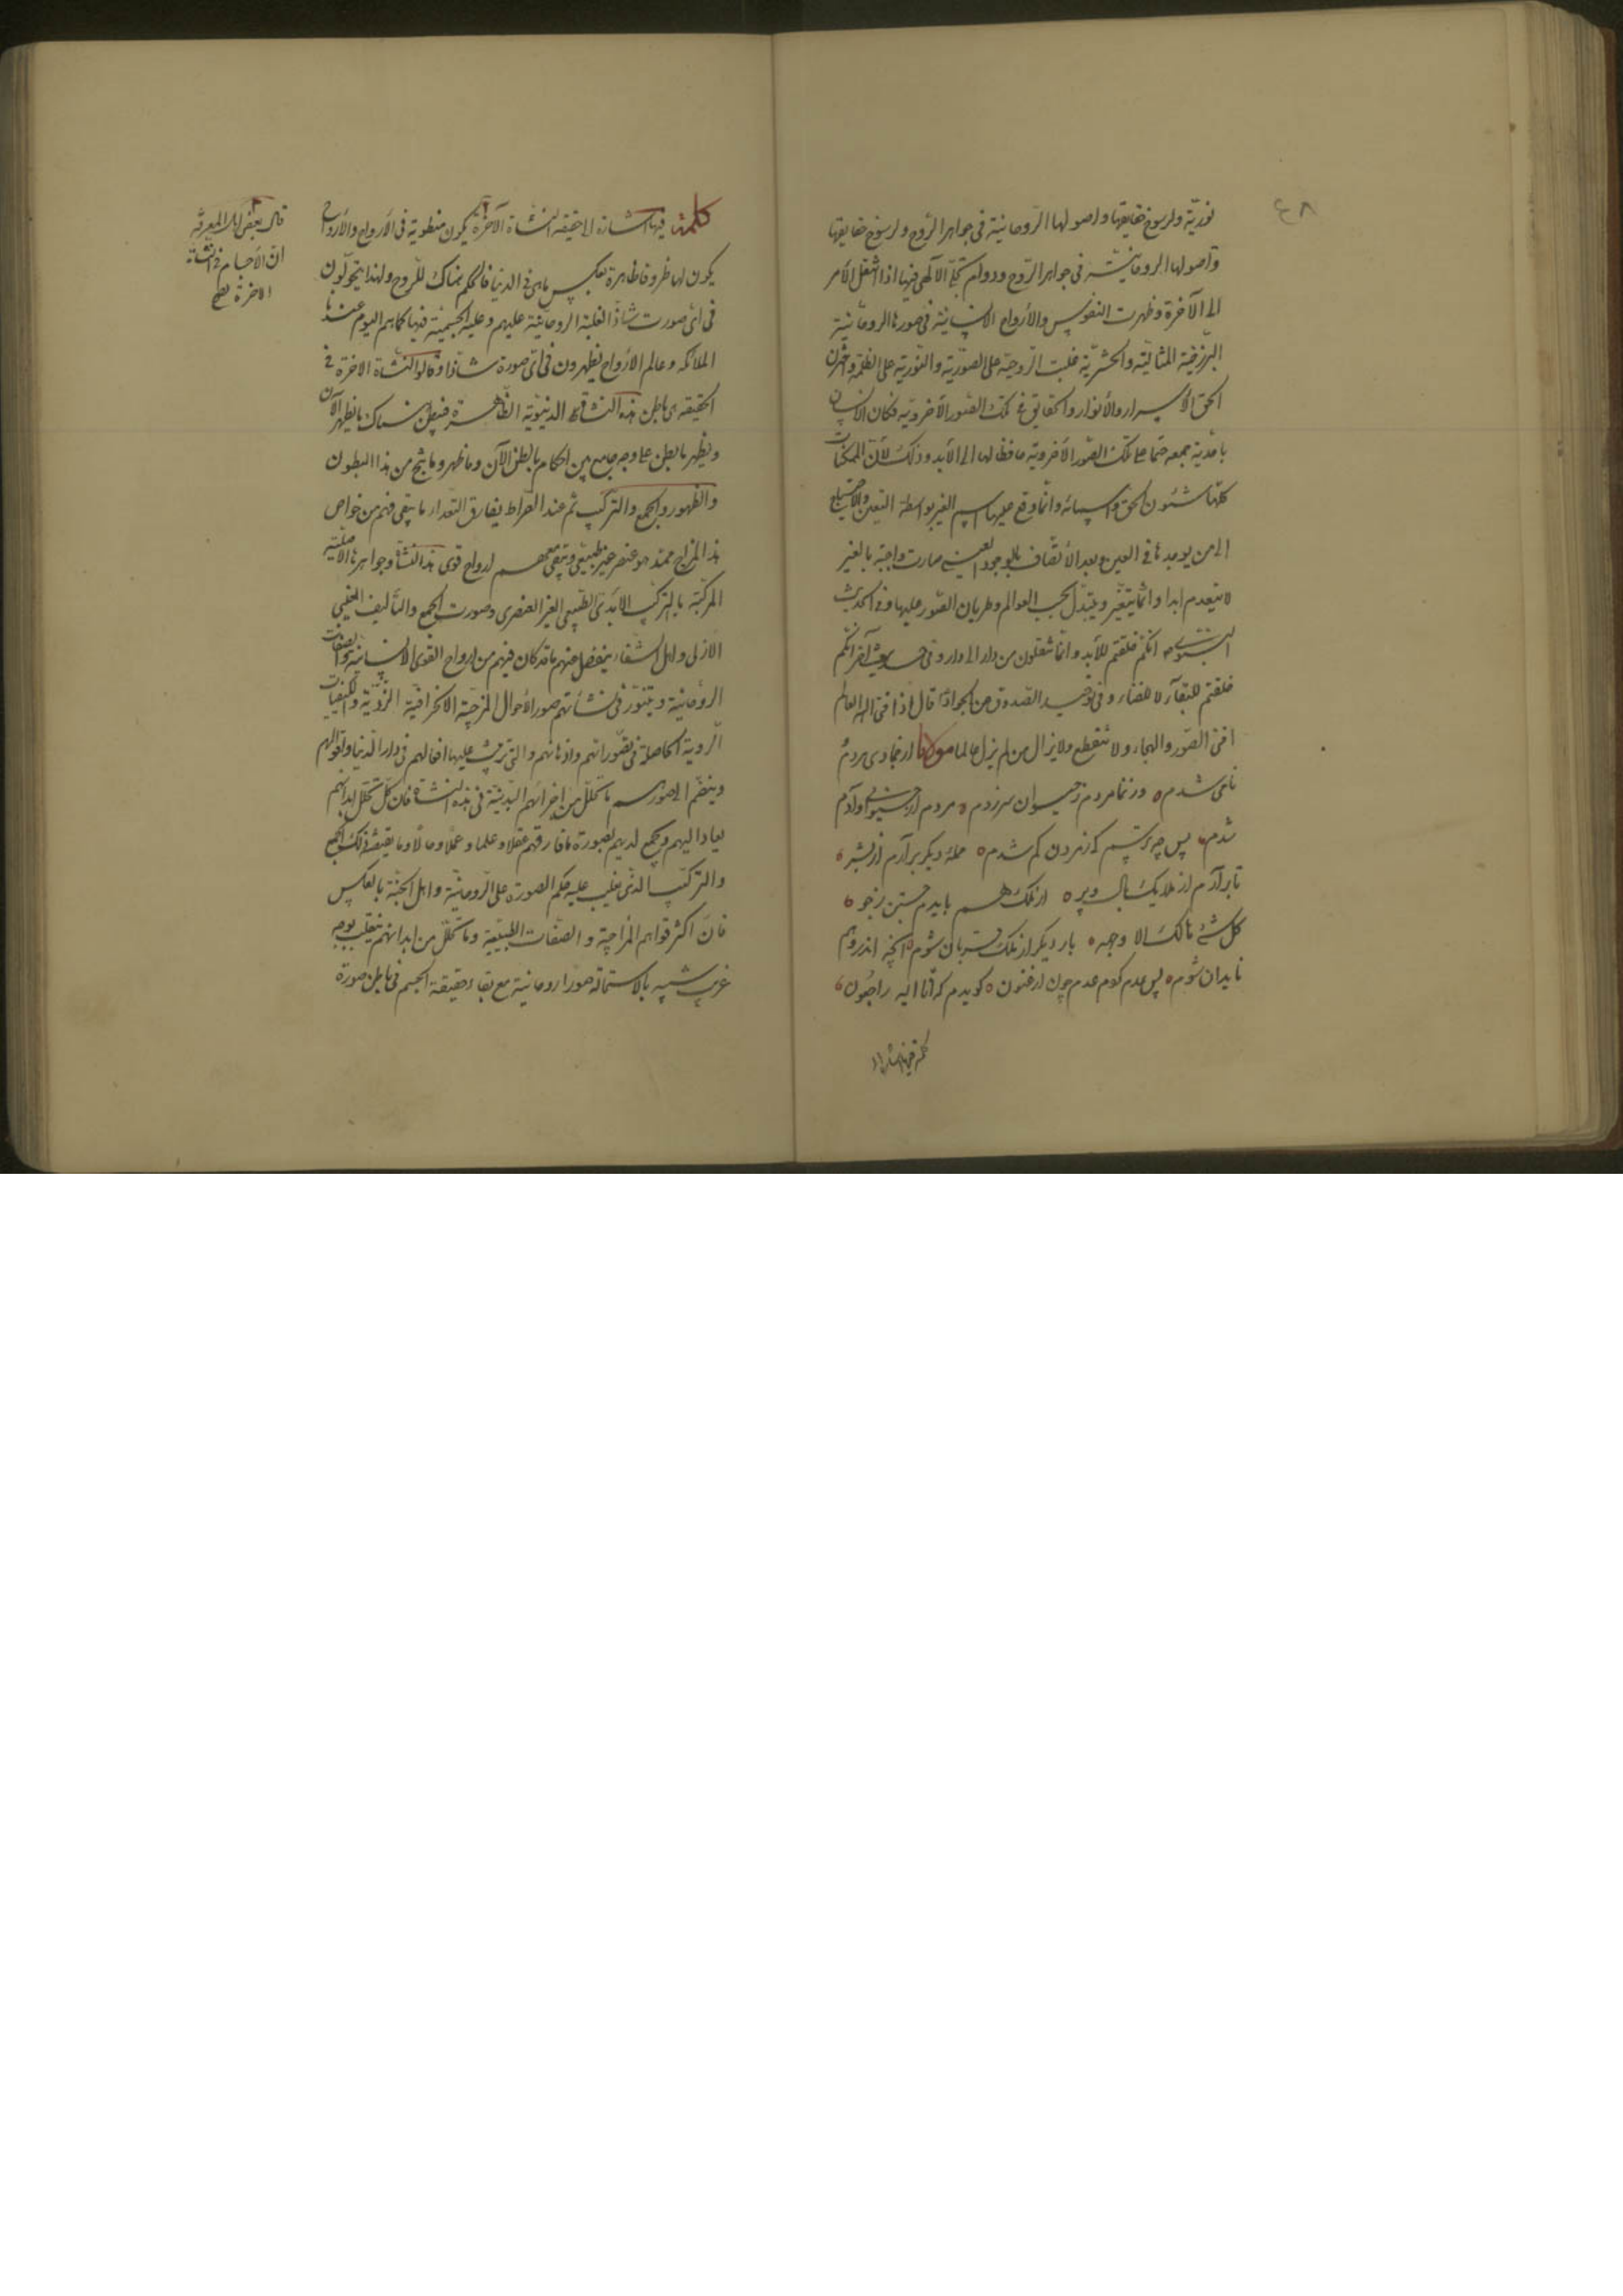 ٤٨
نوريّة ولرسوخ حقايقها واصولها الروحانية فى جواهر الرّوح ولرسوخ حقايقها
واصولها الروحانيّة فى جواهر الرّوح ودوام تجلّى الالهى فيها اذا انتقل الأمر
الى الآخرة وظهرت النفوس والأرواح الانسانيّة فى صورها الروحانية
البرزخية المثاليّة والحشريّة غلبت الرّوحيّة على الصّوريّة والنّوريّة على الظلمة
الحق الاسرار والأنوار والحقايق فى تلك الصّور الأخرويّة فكان الانسان
باحديّة جمعه ختما على تلك الصّور الأخرويّة حافظا لها الى الأبد وذلك لأنّ الممكنات
كلّها شئون الحق واسمائه وانّما وقع عليها اسم الغير بواسطة التعيّن والاحتياج
الى من يوجدها فى العين وبعد الأتّصاف بالوجود العينى صارت واجبة بالغير
لا تنعدم ابدا وانّما يتغيّر ويتبدّل بحسب العوالم وطريان الصّور عليها وفى الحديث
النبوى ص انكم خلقتم للأبد وانّما تنتقلون من دار الى دار وفى حديث آخر انكم
خلقتم للبقآء لا للفناء وفى توحيد الصّدوق عن الجواد ع قال اذا افنى الله العالم
افنى الصّور والهجاء ولا تنقطع ولا يزال من لم يزل عالما مولانا از جمادى مردم
نامى شدم ه وز نما مردم ز حيوان سر زدم ه مردم از حيوانى وآدم
شدم ه پس چه ترسم كى ز مردن كم شدم ه حملۀ ديكر برآرم از بشر ه
تا برآدم از ملايك بال وپر ه از ملك هم بايدم جستن ز جو ه
كل شئ هالك الا وجهه ه بار ديكر از ملك قربان شوم ه آنچه اندر وهم
نايد آن شوم ه پس عدم كردم عدم چون ارغنون ه كويدم كه انّا اليه راجعون ه
كلمة فيها اشارة
كلمة فيها اشارة الى حقيقة النشاة الآخرة يكون منطوية فى الأرواح والأرواح
يكون لها ظروفا ظاهرة بعكس ما هى فى الدنيا فالحكم هناك للرّوح ولهذا يتحولّون
فى اىّ صورت شاؤا لغلبة الروحانيّة عليهم وغلبة الجسميّة فيها كما هم اليوم عندنا
الملائكة وعالم الأرواح يظهرون فى اىّ صورة شاؤا وقالوا النشاة الاخرة فى
الحقيقة هى باطن هذه النشاة الدنيويّة الظّاهرة فيبطن هناك ما ظهر الآن
ويظهر ما بطن على وجه جامع بين احكام ما بطن الآن وما ظهر وما ينتج من هذا البطون
والظهور والجمع والتركيب ثم عند الصراط يفارق السّعدآء ما بقى فيهم من خواص
هذا المزاج ممّا هو عنصر غير طبيعى وتبقى معهم ارواح قوى هذا النشاة وجواهرها الاصليّة
المركّبة بالتركيب الابدى الطّبيعى الغير العنصرى وصورت الجمع والتأليف الغيبى
الازلى واهل الشقاء ينفصل عنهم ما قد كان فيهم من ارواح القوى الانسانيّة والصفات
الروحانية ويتنوّر فى نشأتهم صور الأحوال المزاجيّة الانحرافيّة الرّديّة والكيفيات
الرّدية الحاصلة فى تصّوراتهم واذهانهم والتى ترتّبت عليها افعالهم فى دار الدنيا واقوالهم
وينضّم الى صورهم ما تحلّل من اجزائهم البدنيّة فى هذه النشاة فان كلّ ما تحلّل ابدانهم
يعاد اليهم ويجمع لديهم بصورة ما فارقهم عقلا وعلما وعملا وحالا وما يقتضيه ذلك الجمع
والتركيب الذى يغلب عليه حكم الصورة على الرّوحانيّة واهل الجنّة بالعكس
فانّ اكثر قواهم المزاجيّة والصّفات الطبيعيّة وما تحلّل من ابدانهم ينقلب بوجه
غريب شبيه بالاستحالة صورا روحانية مع بقاء حقيقة الجسم فى باطن صورة
قال بعض اهل المعرفة
ان الأجسام فى النشاة
الاخرة